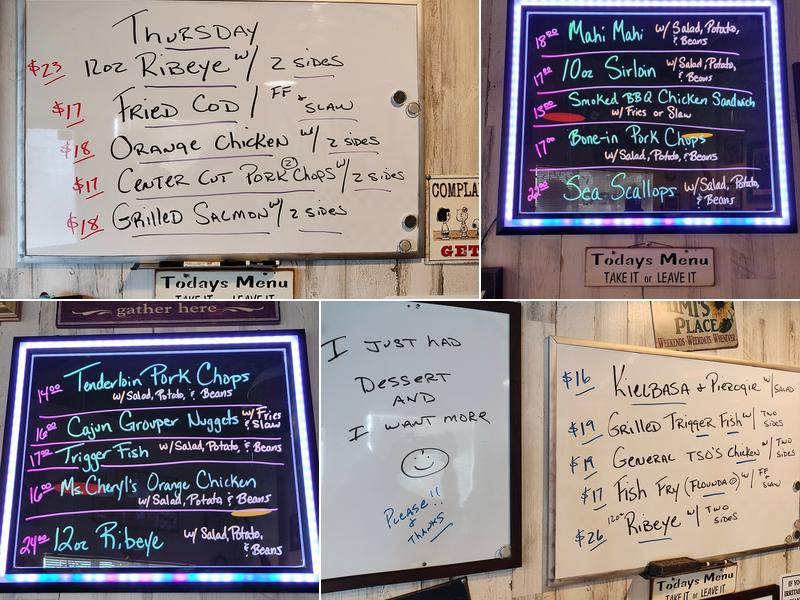 THURSDAY
$23 12oz RIBEYE w/ 2 SIDES
$17 FRIED COD / FF & SLAW
$18 ORANGE CHICKEN w/ 2 SIDES
$17 CENTER CUT PORK (2) CHOPS w/ 2 SIDES
$18 GRILLED SALMON w/ 2 SIDES
COMPLA
GET
Todays Menu
TAKE IT or LEAVE IT
18.00 Mahi Mahi w/ Salad, Potato, & Beans
17.00 10oz Sirloin w/ Salad, Potato, & Beans
Smoked BBQ Chicken Sandwich
w/ Fries or Slaw
17.00 Bone-in Pork Chops
w/ Salad, Potato, & Beans
Sea Scallops w/ Salad, Potato, & Beans
Todays Menu
TAKE IT or LEAVE IT
gather here
14.00 Tenderloin Pork Chops
w/ Salad, Potato, & Beans
16.00 Cajun Grouper Nuggets w/ Fries & Slaw
17.00 Trigger Fish w/ Salad, Potato, & Beans
16.00 Ms. Cheryl's Orange Chicken
w/ Salad, Potato & Beans
24.00 12oz Ribeye w/ Salad, Potato, & Beans
I JUST HAD
DESSERT
AND
I WANT MORE
PLEASE!!
&
THANKS
PLACE
WEEKENDS·WEEKDAYS·WHENEVER
$16 KIELBASA & PIEROGIE w/ SALAD
$19 GRILLED TRIGGER FISH w/ TWO SIDES
$19 GENERAL TSO'S CHICKEN w/ TWO SIDES
$17 FISH FRY (FLOUNDA ☺) w/ FF & SLAW
$26 12oz RIBEYE w/ TWO SIDES
Todays Menu
TAKE IT or LEAVE IT
IF YOU